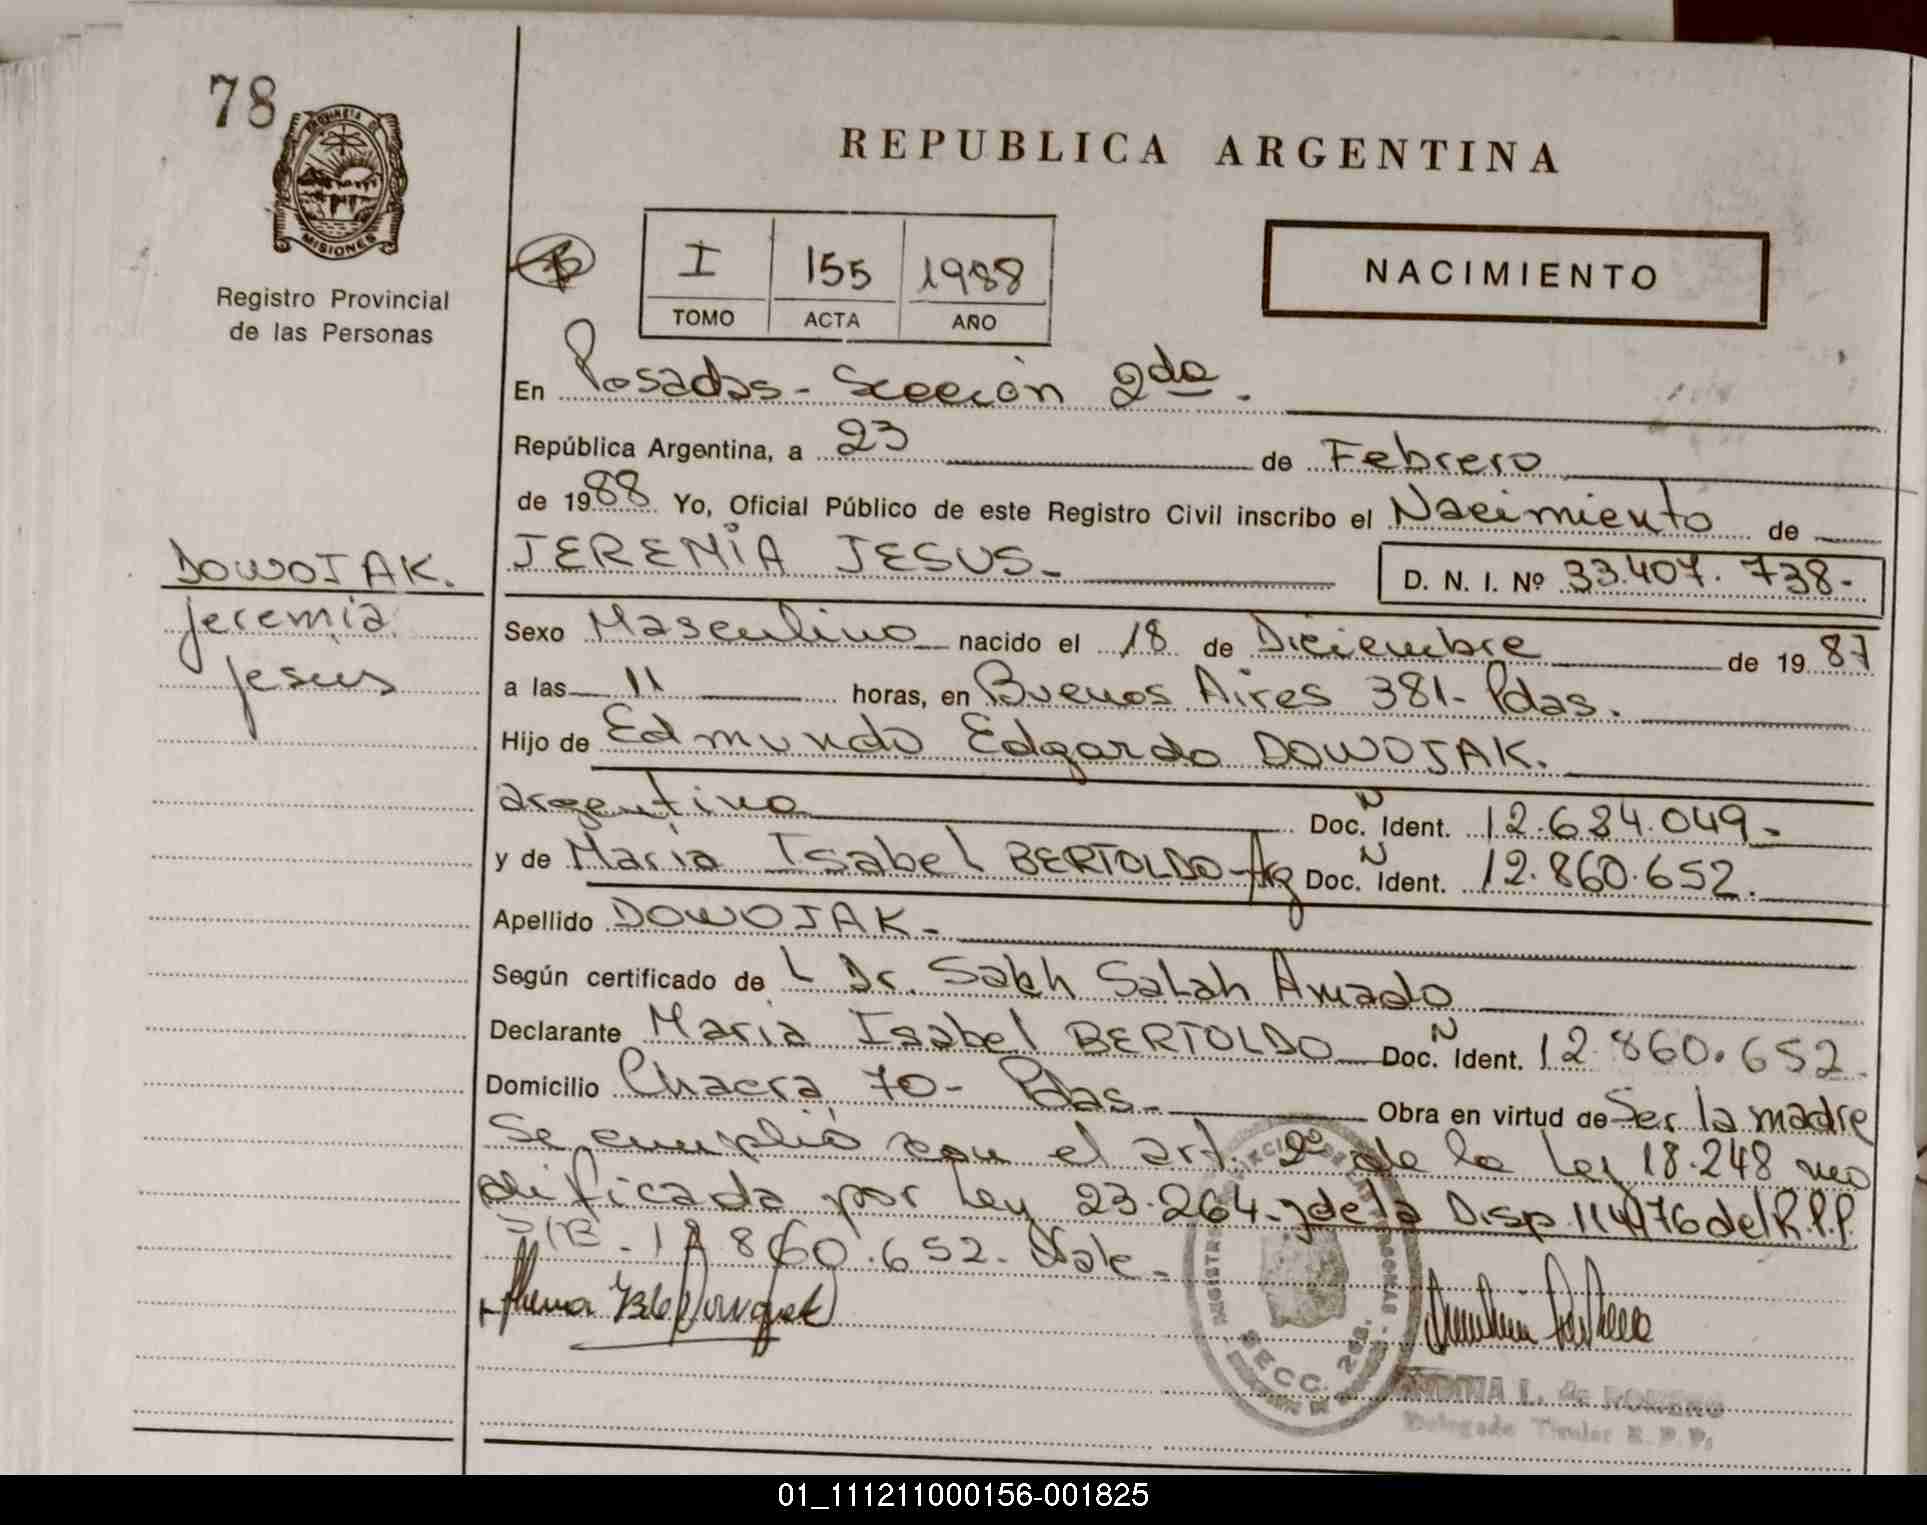 78
PROVINCIA DE
MISIONES
Registro Provincial
de las Personas
REPUBLICA ARGENTINA
I 155 1988
TOMO ACTA AÑO
NACIMIENTO
En Posadas - Sección 2da.
República Argentina, a 23 de Febrero
de 1988 Yo, Oficial Público de este Registro Civil inscribo el Nacimiento de
DOWOJAK.
Jeremía
Jesús
JEREMIA JESUS.- D. N. I. Nº 33.407.738-
Sexo Masculino nacido el 18 de Diciembre de 1987
a las 11 horas, en Buenos Aires 381- Pdas.
Hijo de Edmundo Edgardo DOWOJAK.
argentino Doc. N Ident. 12.634.049.-
y de María Isabel BERTOLDO-Arg Doc. N Ident. 12.860.652.
Apellido DOWOJAK.-
Según certificado de L Dr. Sakh Salah Amado
Declarante María Isabel BERTOLDO Doc. N Ident. 12.860.652.
Domicilio Chacra 70- Pdas.- Obra en virtud de Ser la madre
Se cumplió con el art. 2º de la Ley 18.248 mo
dificada por Ley 23.264.y de la Disp. 114/76 del R.P.P.
S/B - 12.860.652. Vale.-
SECC. 2da.
L. de ROMERO
Delegado Titular R. P. P.
01_111211000156-001825